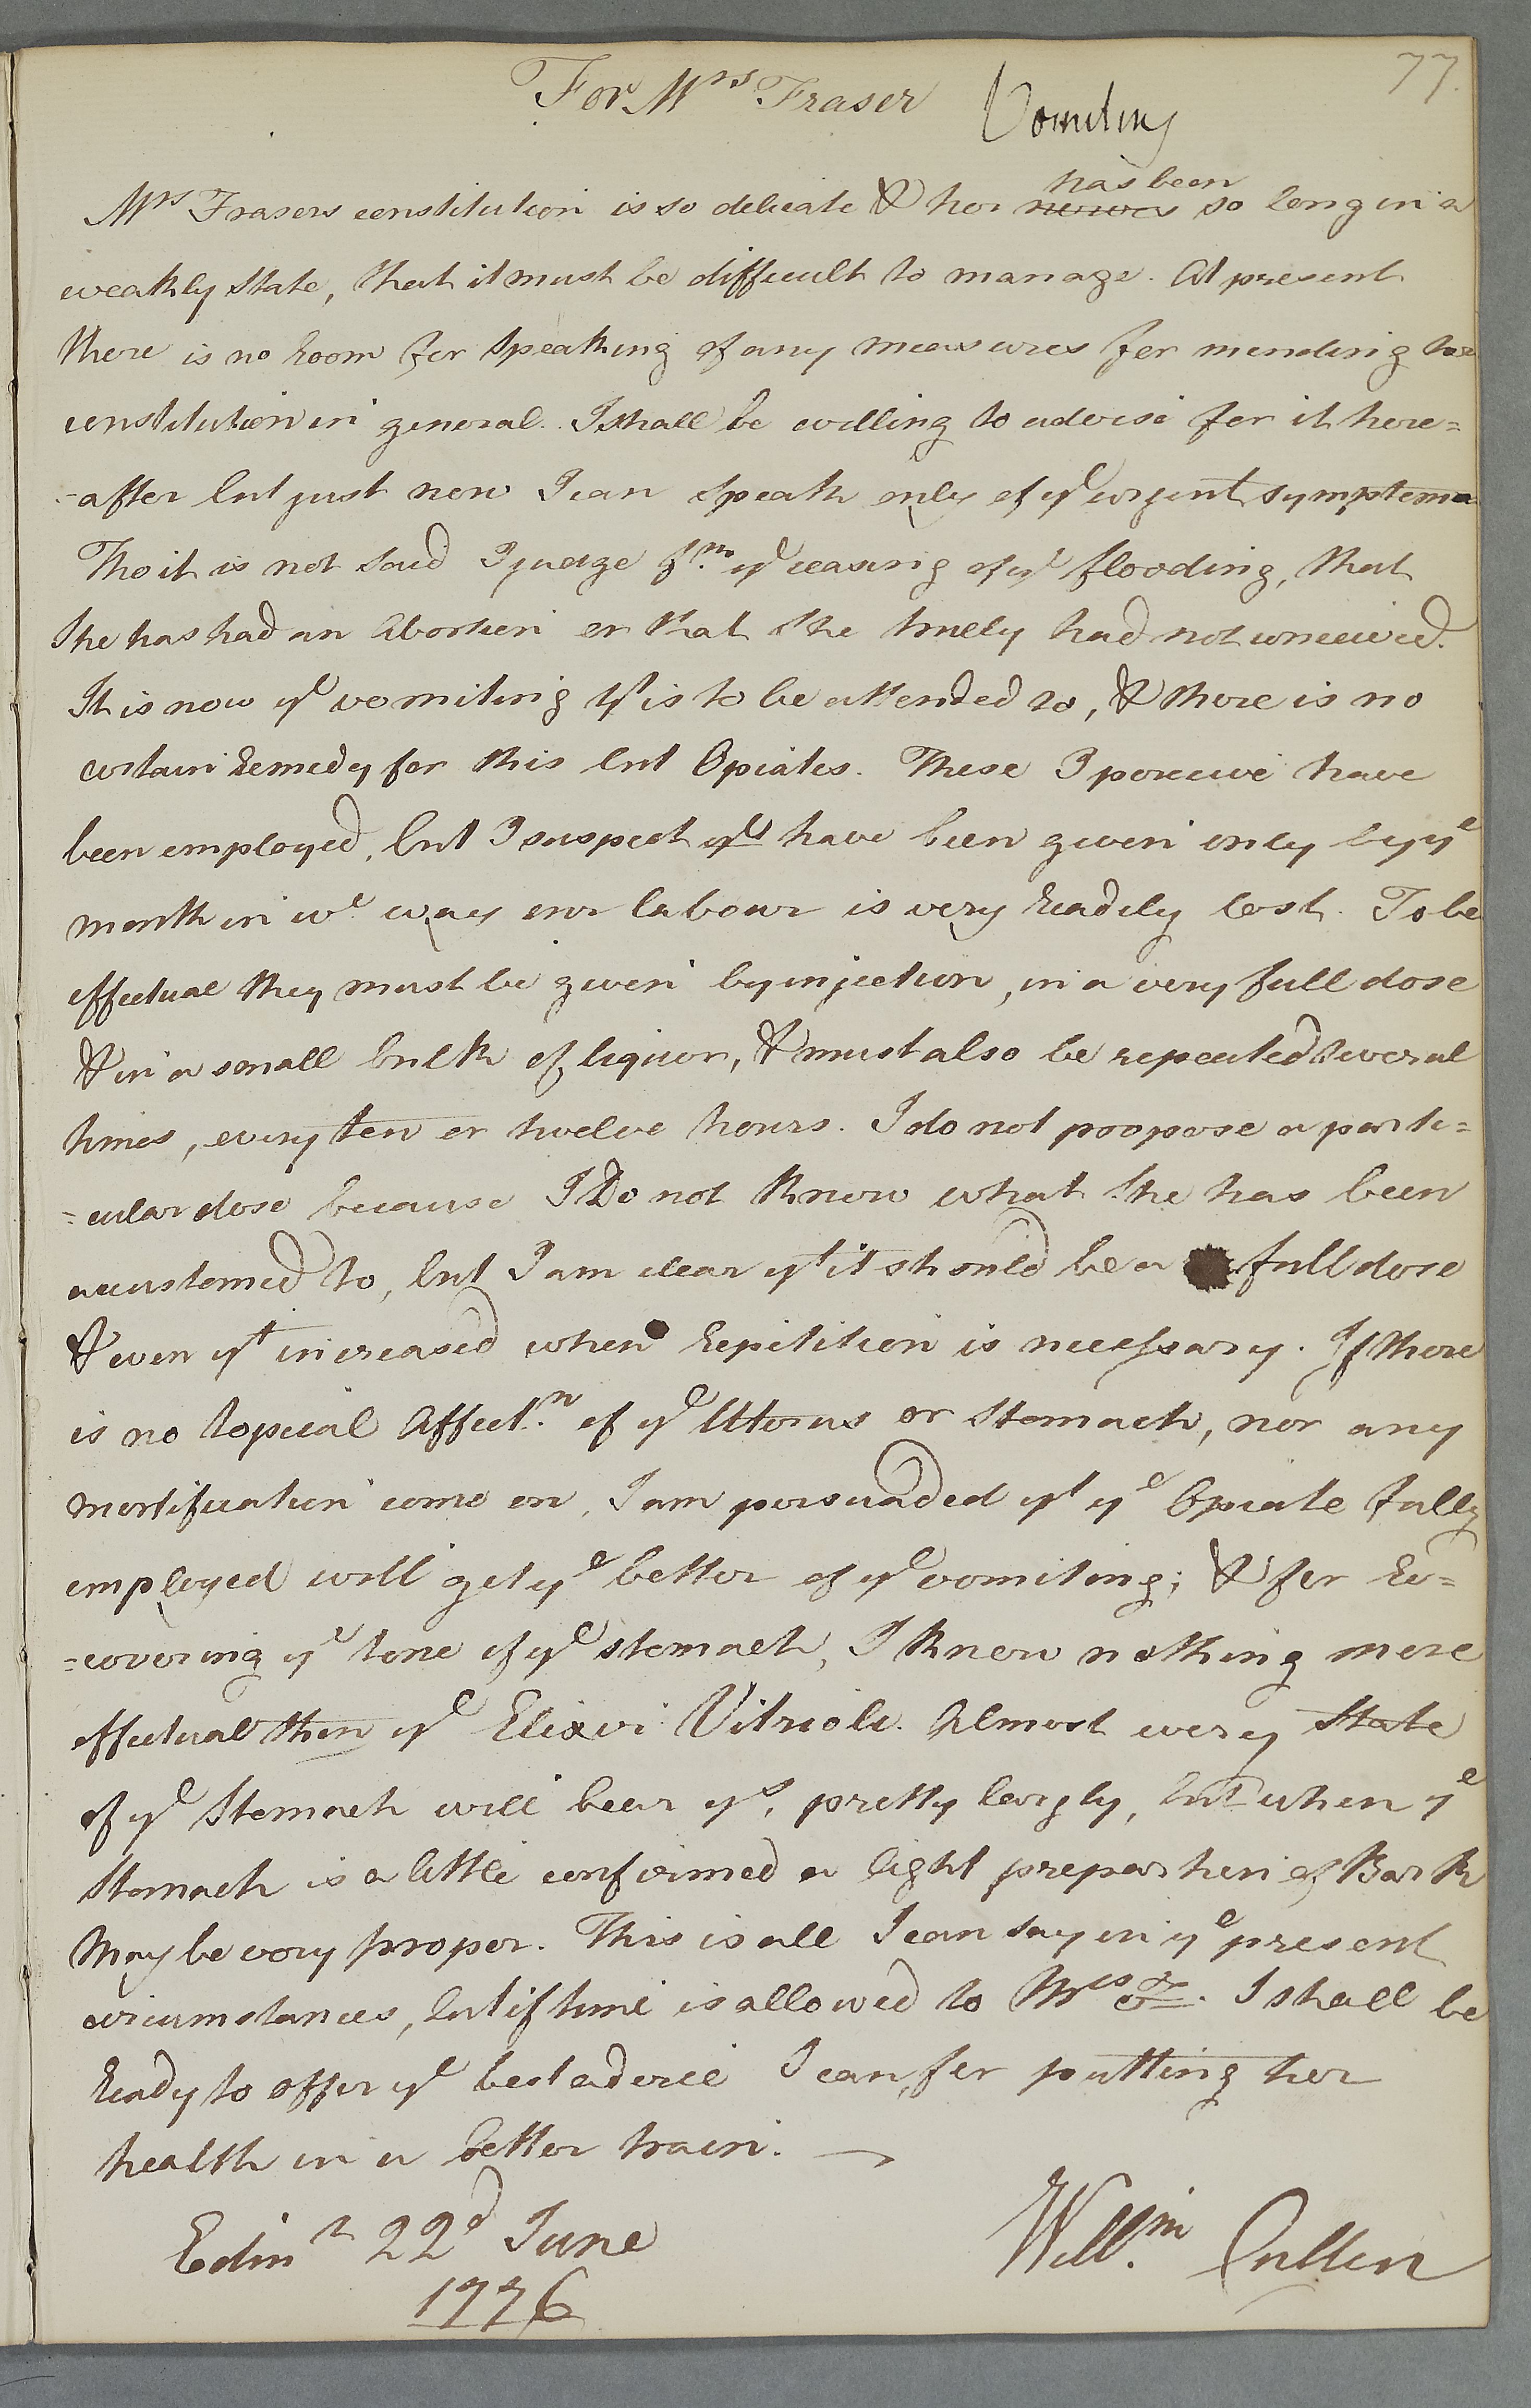 77.
For Mrs Fraser
Vomiting
has been
Mrs Frasers constitution is so delicate & her nerves so long in a
weakly state, that it must be difficult to manage. At present
there is no Room for Speaking of any measures for mending her
constitution in general. I shall be willing to advise for it here=
-after but just now I can Speak only of ye urgent symptoms
Tho it is not said I judge frm ye ceasing of ye flooding, that
She has had an Abortion or that She truely had not conceived.
It is now ye vomiting yt is to be attended to, & there is no
certain Remedy for this but Opiates. These I perceive have
been employed, but I suspect ys have been given only by ye
mouth in wc way our labour is very Readily lost. To be
effectual they must be given by injection, in a very full dose
& in a small bulk of liquor, & must also be repeated Several
times, every ten or twelve hours. I do not propose a parti=
=cular dose because I Do not Know what She has been
accustomed to, but I am clear yt it should be a full dose
& even yt increased when Repitition is necessary. If there
is no topical Affectn. of ye Uterus or Stomach, nor any
mortification come on, I am persuaded yt ye Opiate fully
employed will get ye better of ye vomiting; & for Re=
=covering ye tone of ye stomach, I Know nothing more
effectual then ye Elixir Vitrioli. Almost every State
of ye Stomach will bear ys, pretty largly, but when ye
Stomach is a little confirmed a light preparation of Bark
May be very proper. This is all I can say in ye present
circumstances, but if time is allowed to Mrs F. I shall be
Ready to offer ye best advice I can, for putting her
health in a better train. —
Edinr 22d June
1776
Willm. Cullen